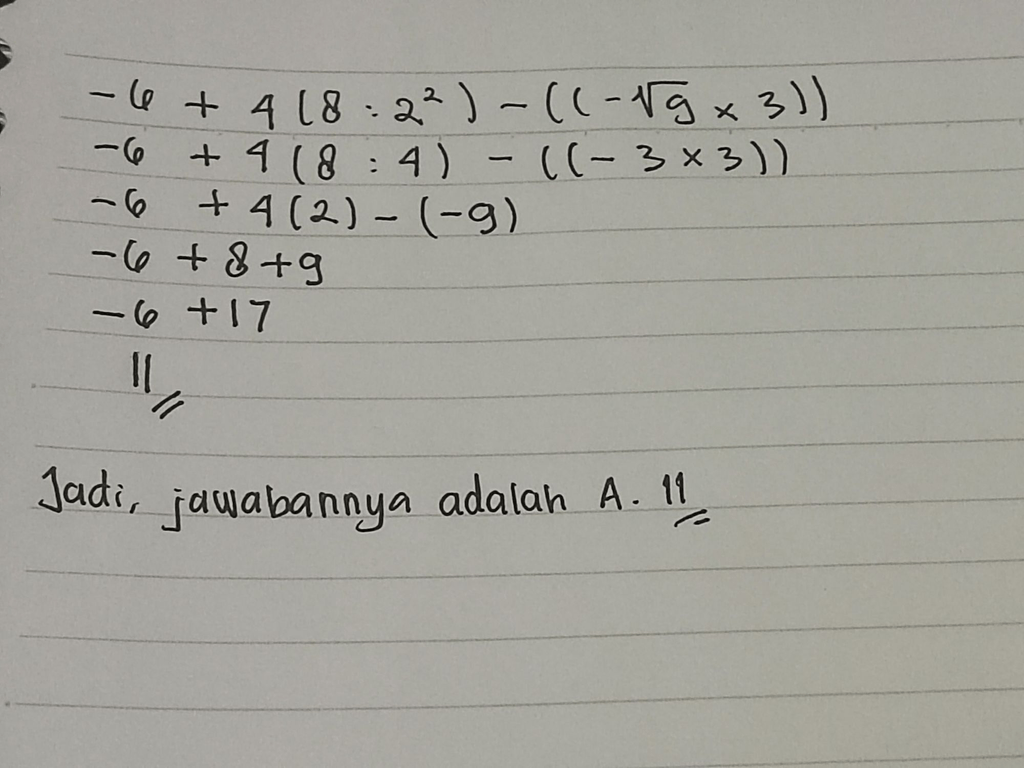 -6 + 4 (8 : 2²) - ((-√9 × 3))
-6 + 4 (8 : 4) - ((-3 × 3))
-6 + 4 (2) - (-9)
-6 + 8 + 9
-6 + 17
11
Jadi, jawabannya adalah A. 11